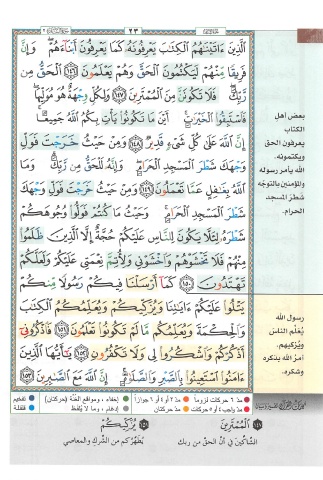 ٢٣
الَّذِينَ ءَاتَيْنَٰهُمُ الْكِتَٰبَ يَعْرِفُونَهُ كَمَا يَعْرِفُونَ أَبْنَاءَهُمْ وَإِنَّ
فَرِيقًا مِّنْهُمْ لَيَكْتُمُونَ الْحَقَّ وَهُمْ يَعْلَمُونَ ١٤٦ الْحَقُّ مِن
رَّبِّكَ فَلَا تَكُونَنَّ مِنَ الْمُمْتَرِينَ ١٤٧ وَلِكُلٍّ وِجْهَةٌ هُوَ مُوَلِّيهَا
فَاسْتَبِقُوا الْخَيْرَٰتِ أَيْنَ مَا تَكُونُوا يَأْتِ بِكُمُ اللَّهُ جَمِيعًا
إِنَّ اللَّهَ عَلَىٰ كُلِّ شَيْءٍ قَدِيرٌ ١٤٨ وَمِنْ حَيْثُ خَرَجْتَ فَوَلِّ
وَجْهَكَ شَطْرَ الْمَسْجِدِ الْحَرَامِ وَإِنَّهُ لَلْحَقُّ مِن رَّبِّكَ وَمَا
اللَّهُ بِغَٰفِلٍ عَمَّا تَعْمَلُونَ ١٤٩ وَمِنْ حَيْثُ خَرَجْتَ فَوَلِّ وَجْهَكَ
شَطْرَ الْمَسْجِدِ الْحَرَامِ وَحَيْثُ مَا كُنتُمْ فَوَلُّوا وُجُوهَكُمْ
شَطْرَهُ لِئَلَّا يَكُونَ لِلنَّاسِ عَلَيْكُمْ حُجَّةٌ إِلَّا الَّذِينَ ظَلَمُوا
مِنْهُمْ فَلَا تَخْشَوْهُمْ وَاخْشَوْنِي وَلِأُتِمَّ نِعْمَتِي عَلَيْكُمْ وَلَعَلَّكُمْ
تَهْتَدُونَ ١٥٠ كَمَا أَرْسَلْنَا فِيكُمْ رَسُولًا مِّنكُمْ
يَتْلُوا عَلَيْكُمْ ءَايَٰتِنَا وَيُزَكِّيكُمْ وَيُعَلِّمُكُمُ الْكِتَٰبَ
وَالْحِكْمَةَ وَيُعَلِّمُكُم مَّا لَمْ تَكُونُوا تَعْلَمُونَ ١٥١ فَاذْكُرُونِي
أَذْكُرْكُمْ وَاشْكُرُوا لِي وَلَا تَكْفُرُونِ ١٥٢ يَٰأَيُّهَا الَّذِينَ
ءَامَنُوا اسْتَعِينُوا بِالصَّبْرِ وَالصَّلَوٰةِ إِنَّ اللَّهَ مَعَ الصَّٰبِرِينَ ١٥٣
بعض اهل
الكتاب
يعرفون الحق
ويكتمونه.
الله يأمر رسوله
والمؤمنين بالتوجّه
شطر المسجد
الحرام.
رسول الله
يُعلّم الناس
ويُزكيهم.
أمرُ الله بذكره
وشكره.
مدّ ٦ حركات لزوماً مدّ ٢ أو ٤ أو ٦ جوازاً إخفاء، ومواقع الغُنَّة (حركتان) تفخيم
مدّ واجب ٤ أو ٥ حركات مدّ حركتان إدغام، وما لا يُلفظ قلقلة
١٤٧ الْمُمْتَرِينَ
الشاكّين في أنّ الحقّ من ربك
١٥١ يُزَكِّيكُمْ
يُطهّركم من الشّرك والمعاصي